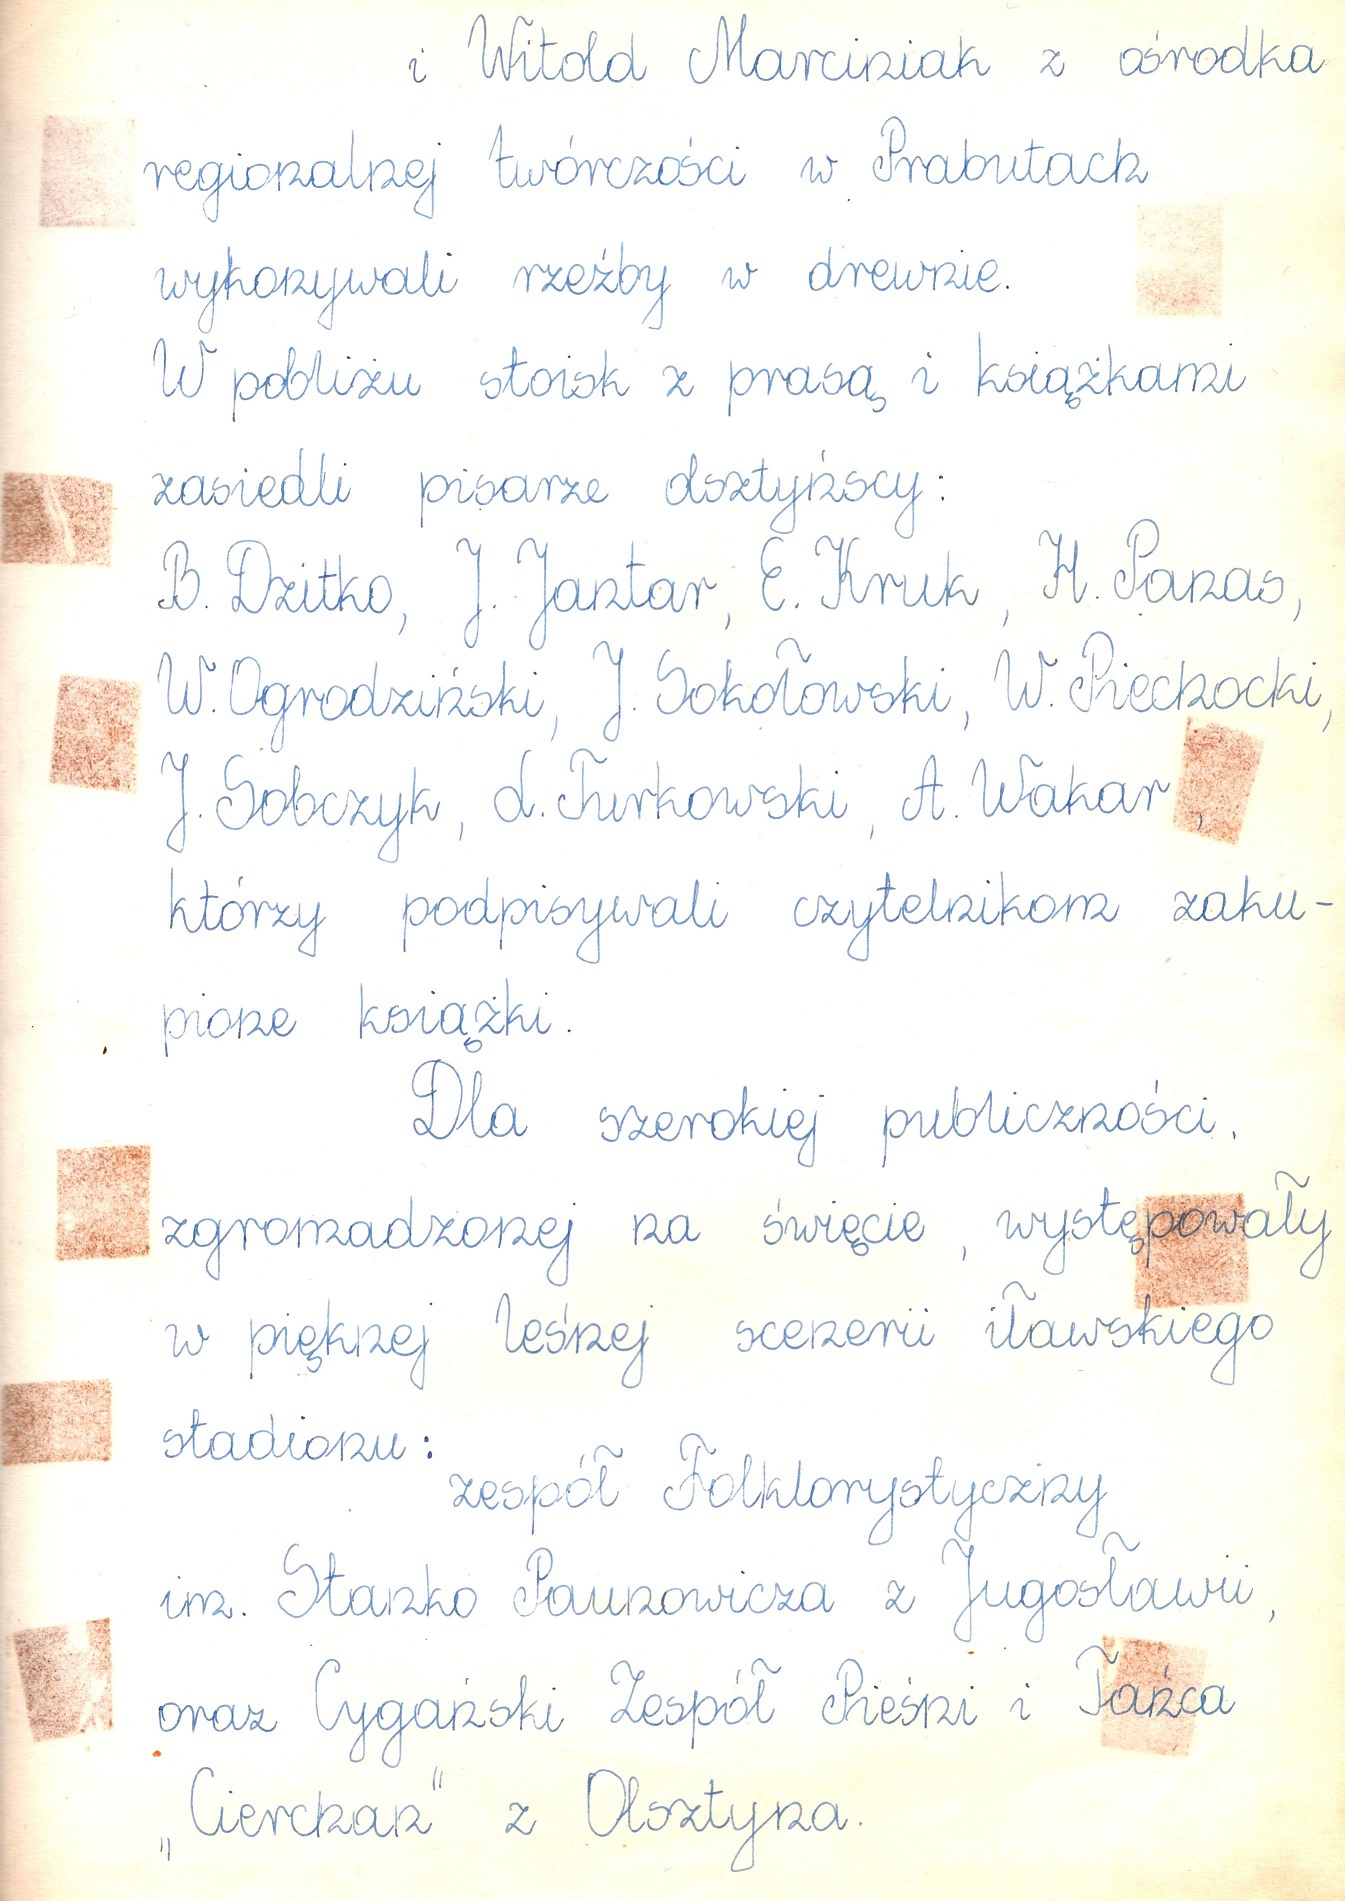 i Witold Marciniak z ośrodka
regionalnej twórczości w Prabutach
wykonywali rzeźby w drewnie.
W pobliżu stoisk z prasą i książkami
zasiedli pisarze olsztyńscy:
B. Dzitko, J. Jantar, E. Kruk, H. Panas,
W. Ogrodziński, J. Sokołowski, W. Piechocki,
J. Sobczyk, L. Turkowski, A. Wakar,
którzy podpisywali czytelnikom zaku-
pione książki.
Dla szerokiej publiczności,
zgromadzonej na święcie, występowały
w pięknej leśnej scenerii iławskiego
stadionu:
zespół Folklorystyczny
im. Stanko Paunowicza z Jugosławii,
oraz Cygański Zespół Pieśni i Tańca
„Cierchan" z Olsztyna.